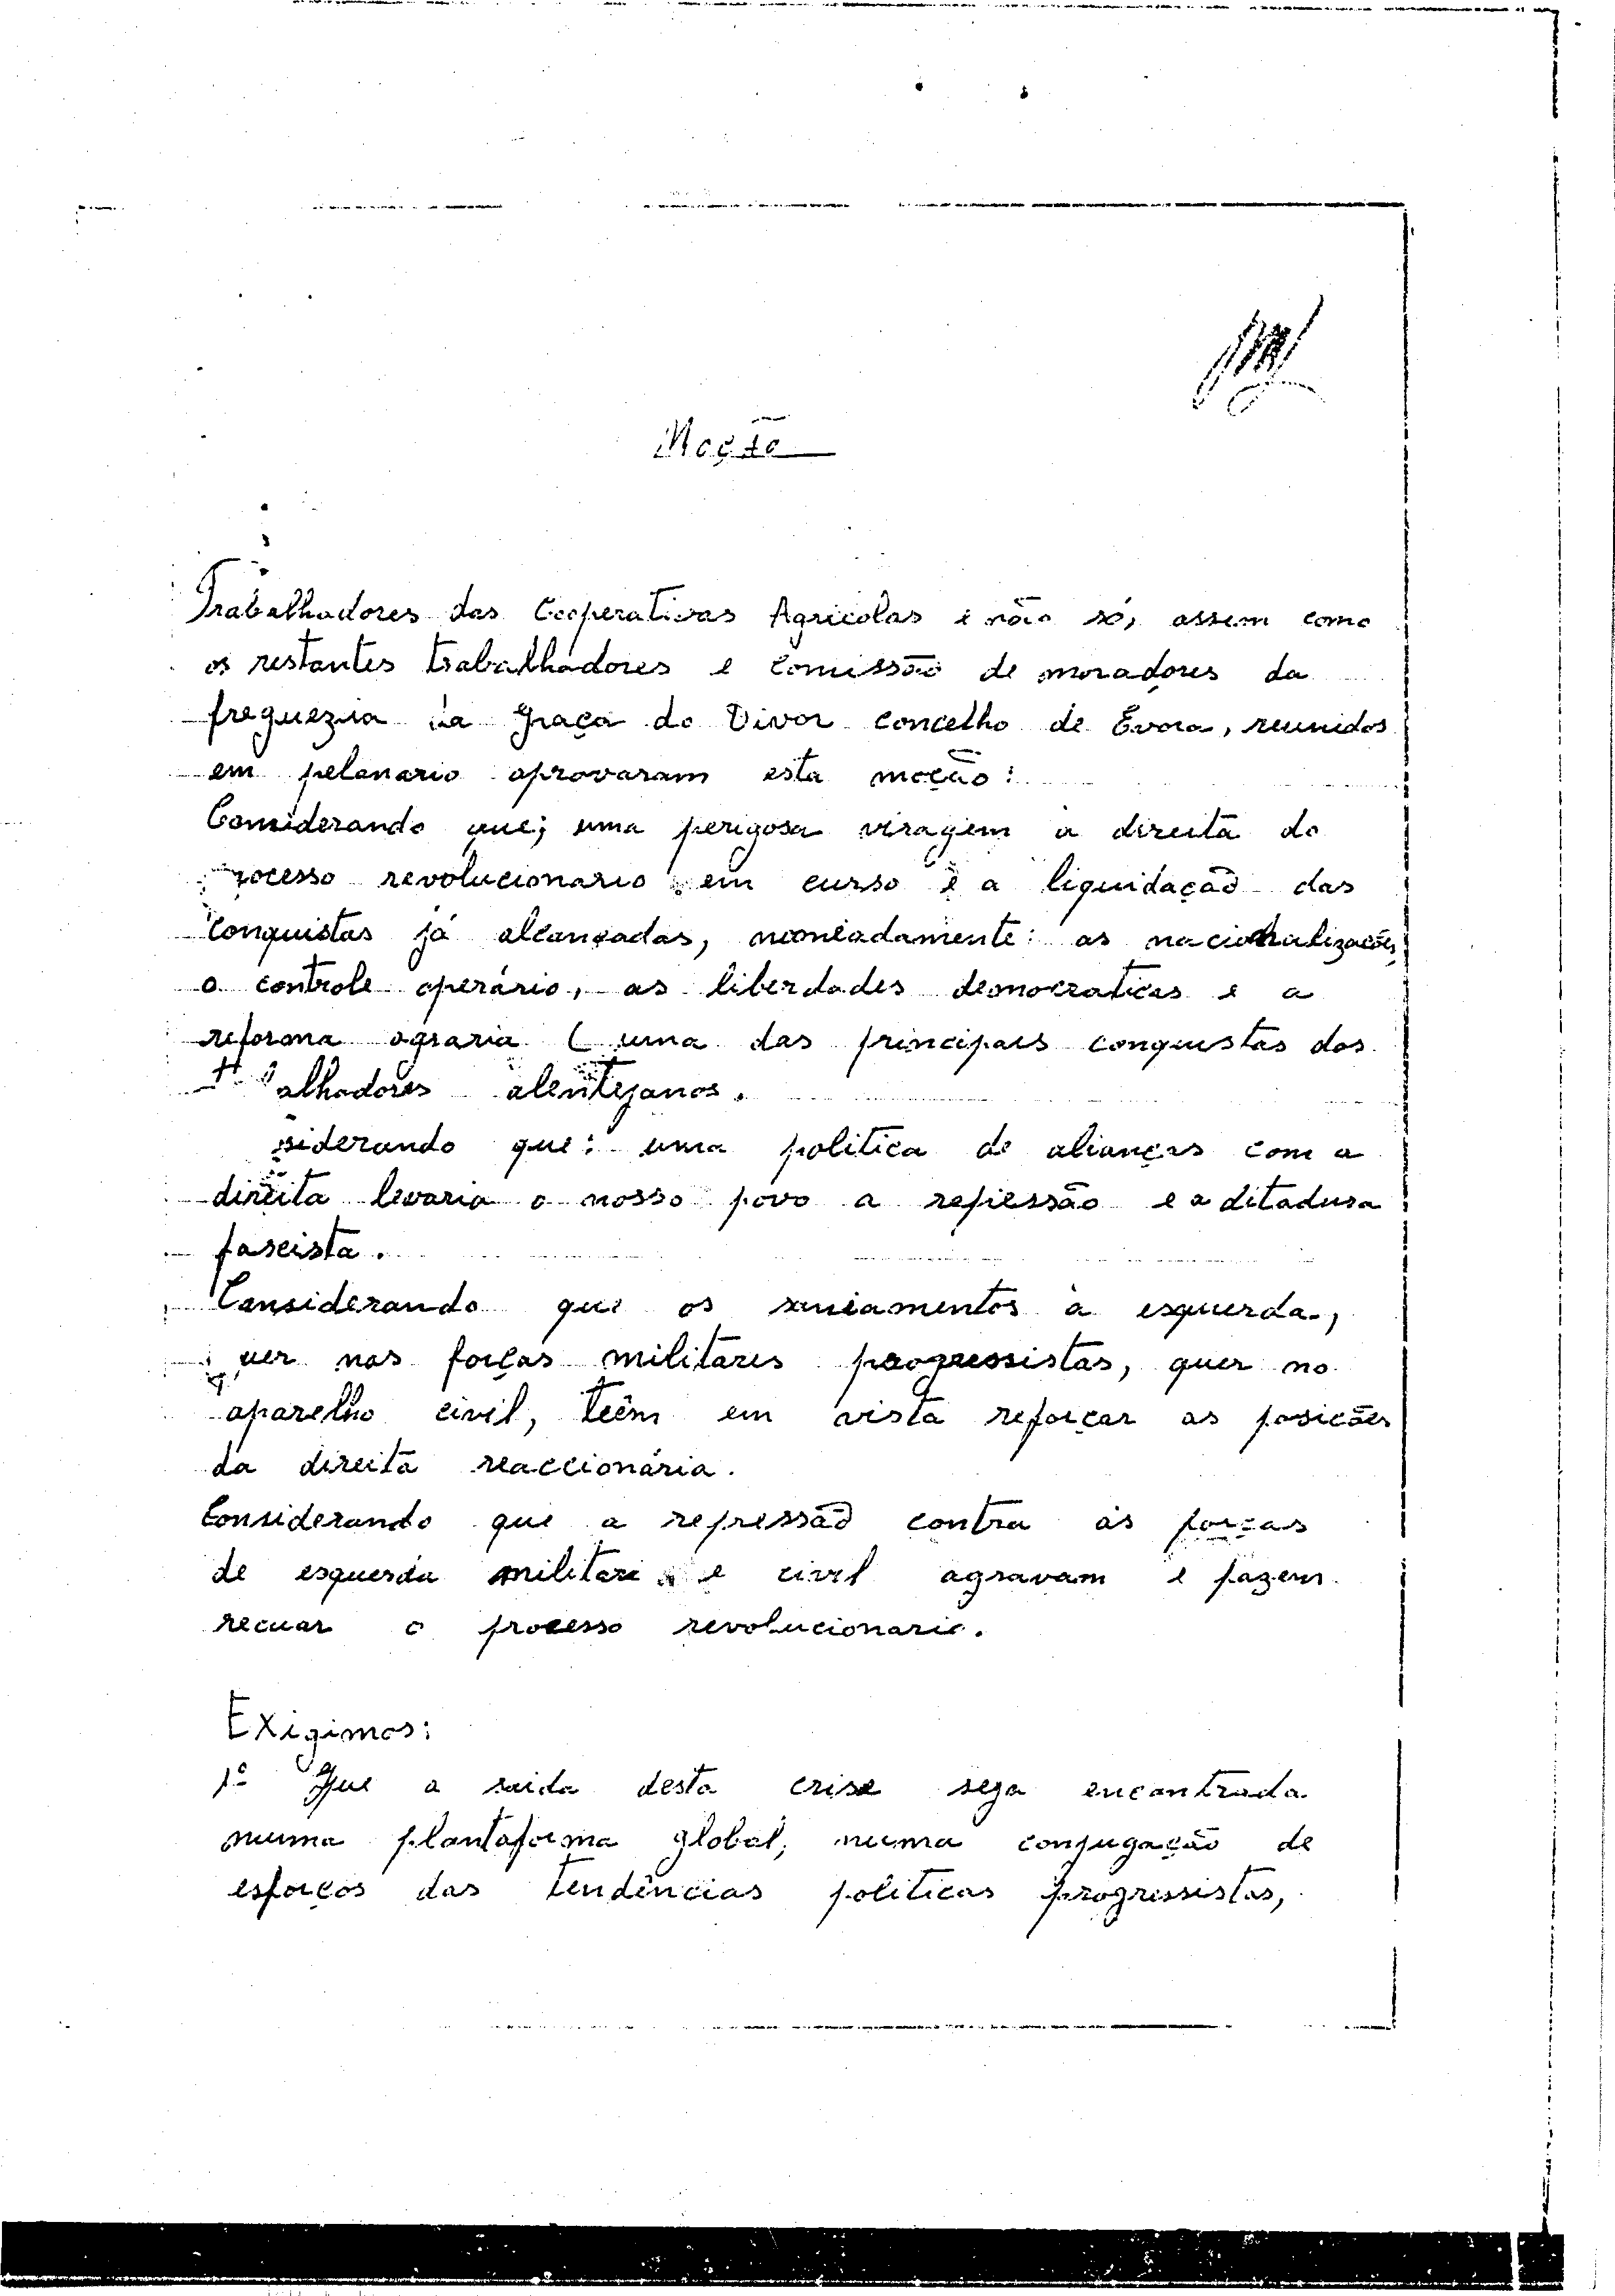 Moção
Trabalhadores das Cooperativas Agricolas e não só, assim como
os restantes trabalhadores e comissão de moradores da
freguezia da Graça do Divor concelho de Evora, reunidos
em pelenario aprovaram esta moção:
Considerando que; uma perigosa viragem à direita do
processo revolucionario em curso é a liquidação das
conquistas já alcançadas, nomeadamente: as nacionalizações,
o controle operário, as liberdades democraticas e a
reforma agraria (uma das principais conquistas dos
alhadores alentejanos.
siderando que: uma politica de alianças com a
direita levaria o nosso povo a repressão e a ditadura
fascista.
Considerando que os saniamentos à esquerda,
quer nas forças militares progressistas, quer no
aparelho civil, teêm em vista reforçar as posições
da direita reaccionária.
Considerando que a repressão contra as forças
de esquerda militar e civil agravam e fazem
recuar o processo revolucionario.
Exigimos:
1º Que a saida desta crise seja encontrada
numa plantaforma global, numa conjugação de
esforços das tendências politicas progressistas,